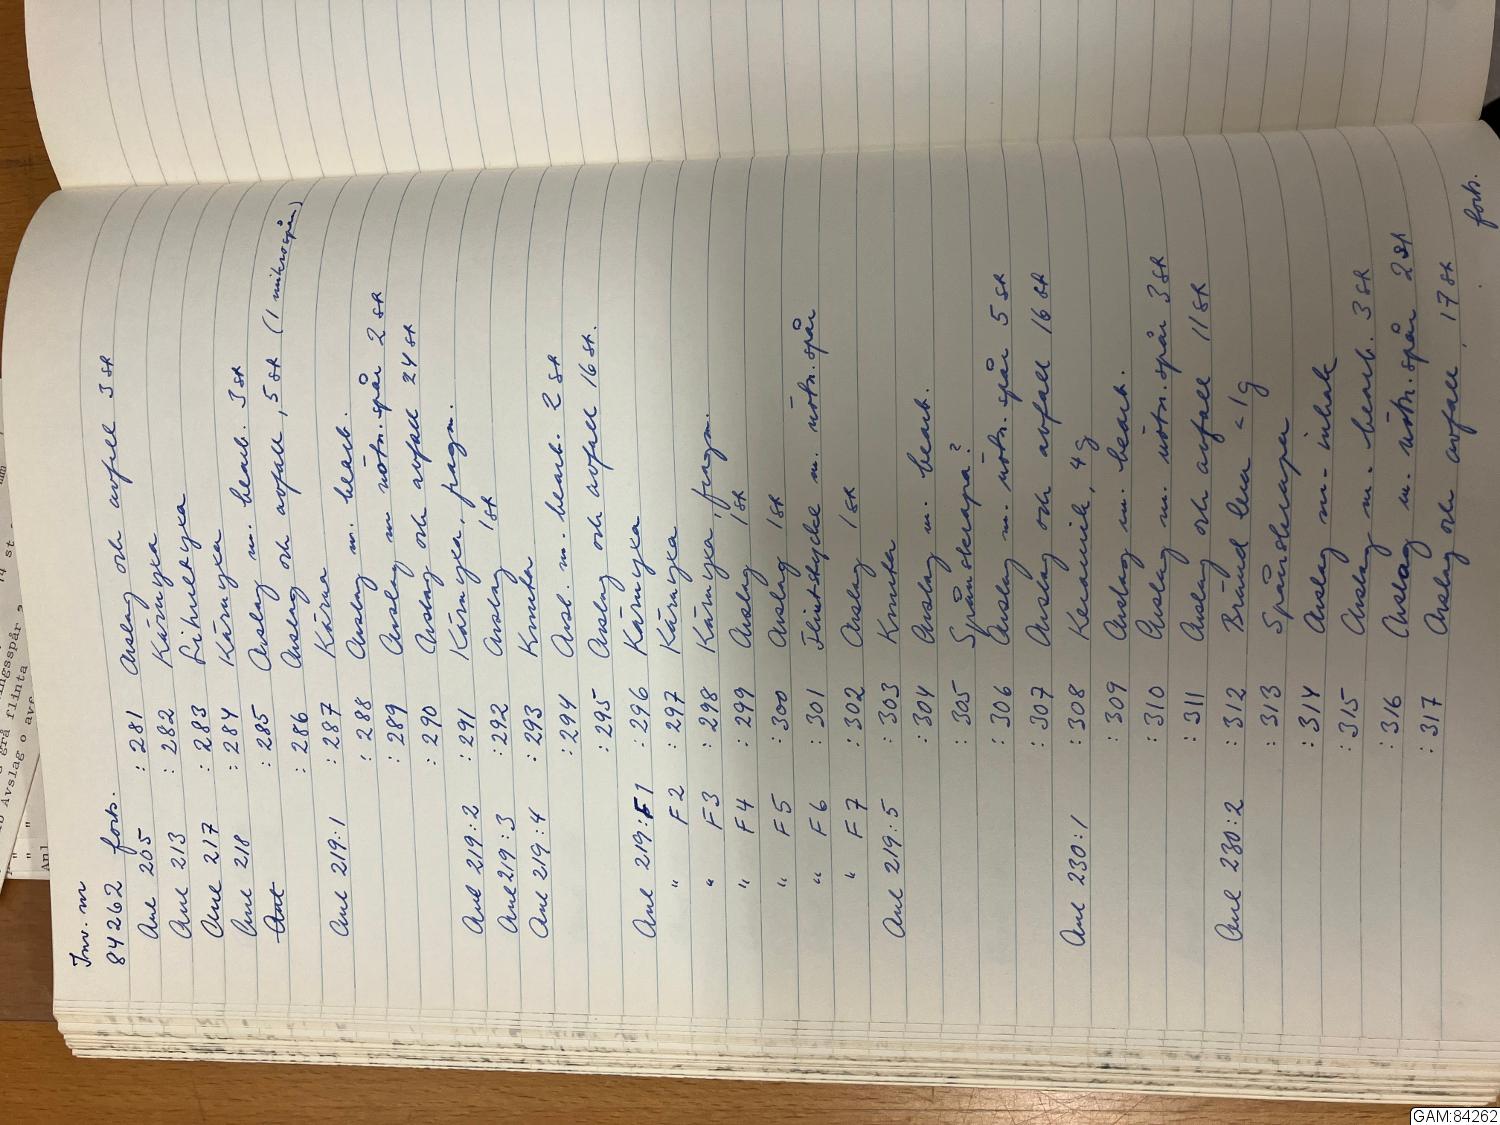 Inv. nr
84262 forts.
Anl 205 :281 Avslag och avfall 3 st
Anl 213 :282 Kärnyxa
Anl 217 :283 Lihultyxa
Anl 218 :284 Kärnyxa
Anl :285 Avslag m. bearb. 3 st
:286 Avslag och avfall, 5 st (1 mikrospån)
Anl 219:1 :287 Kärna
:288 Avslag m. bearb.
:289 Avslag m nötn.spår 2 st
:290 Avslag och avfall 24 st
Anl 219:2 :291 Kärnyxa, fragm.
Anl 219:3 :292 Avslag 1 st
Anl 219:4 :293 Knuta
:294 Avsl. m. bearb. 2 st
:295 Avslag och avfall 16 st.
Anl 219:F1 :296 Kärnyxa
" F2 :297 Kärnyxa
" F3 :298 Kärnyxa, fragm.
" F4 :299 Avslag 1 st
" F5 :300 Avslag 1 st
" F6 :301 Flintstycke m. nötn.spår
" F7 :302 Avslag 1 st
Anl 219:5 :303 Knuta
:304 Avslag m. bearb.
:305 Spånskrapa?
:306 Avslag m. nötn.spår 5 st
:307 Avslag och avfall 16 st
Anl 230:1 :308 Keramik, 4 g
:309 Avslag m. bearb.
:310 Avslag m. nötn.spår 3 st
:311 Avslag och avfall 11 st
Anl 230:2 :312 Bränd lera <1 g
:313 Spånskrapa
:314 Avslag m. inhak
:315 Avslag m. bearb. 3 st
:316 Avslag m. nötn.spår 2 st
:317 Avslag och avfall, 17 st
forts.
GAM:84262